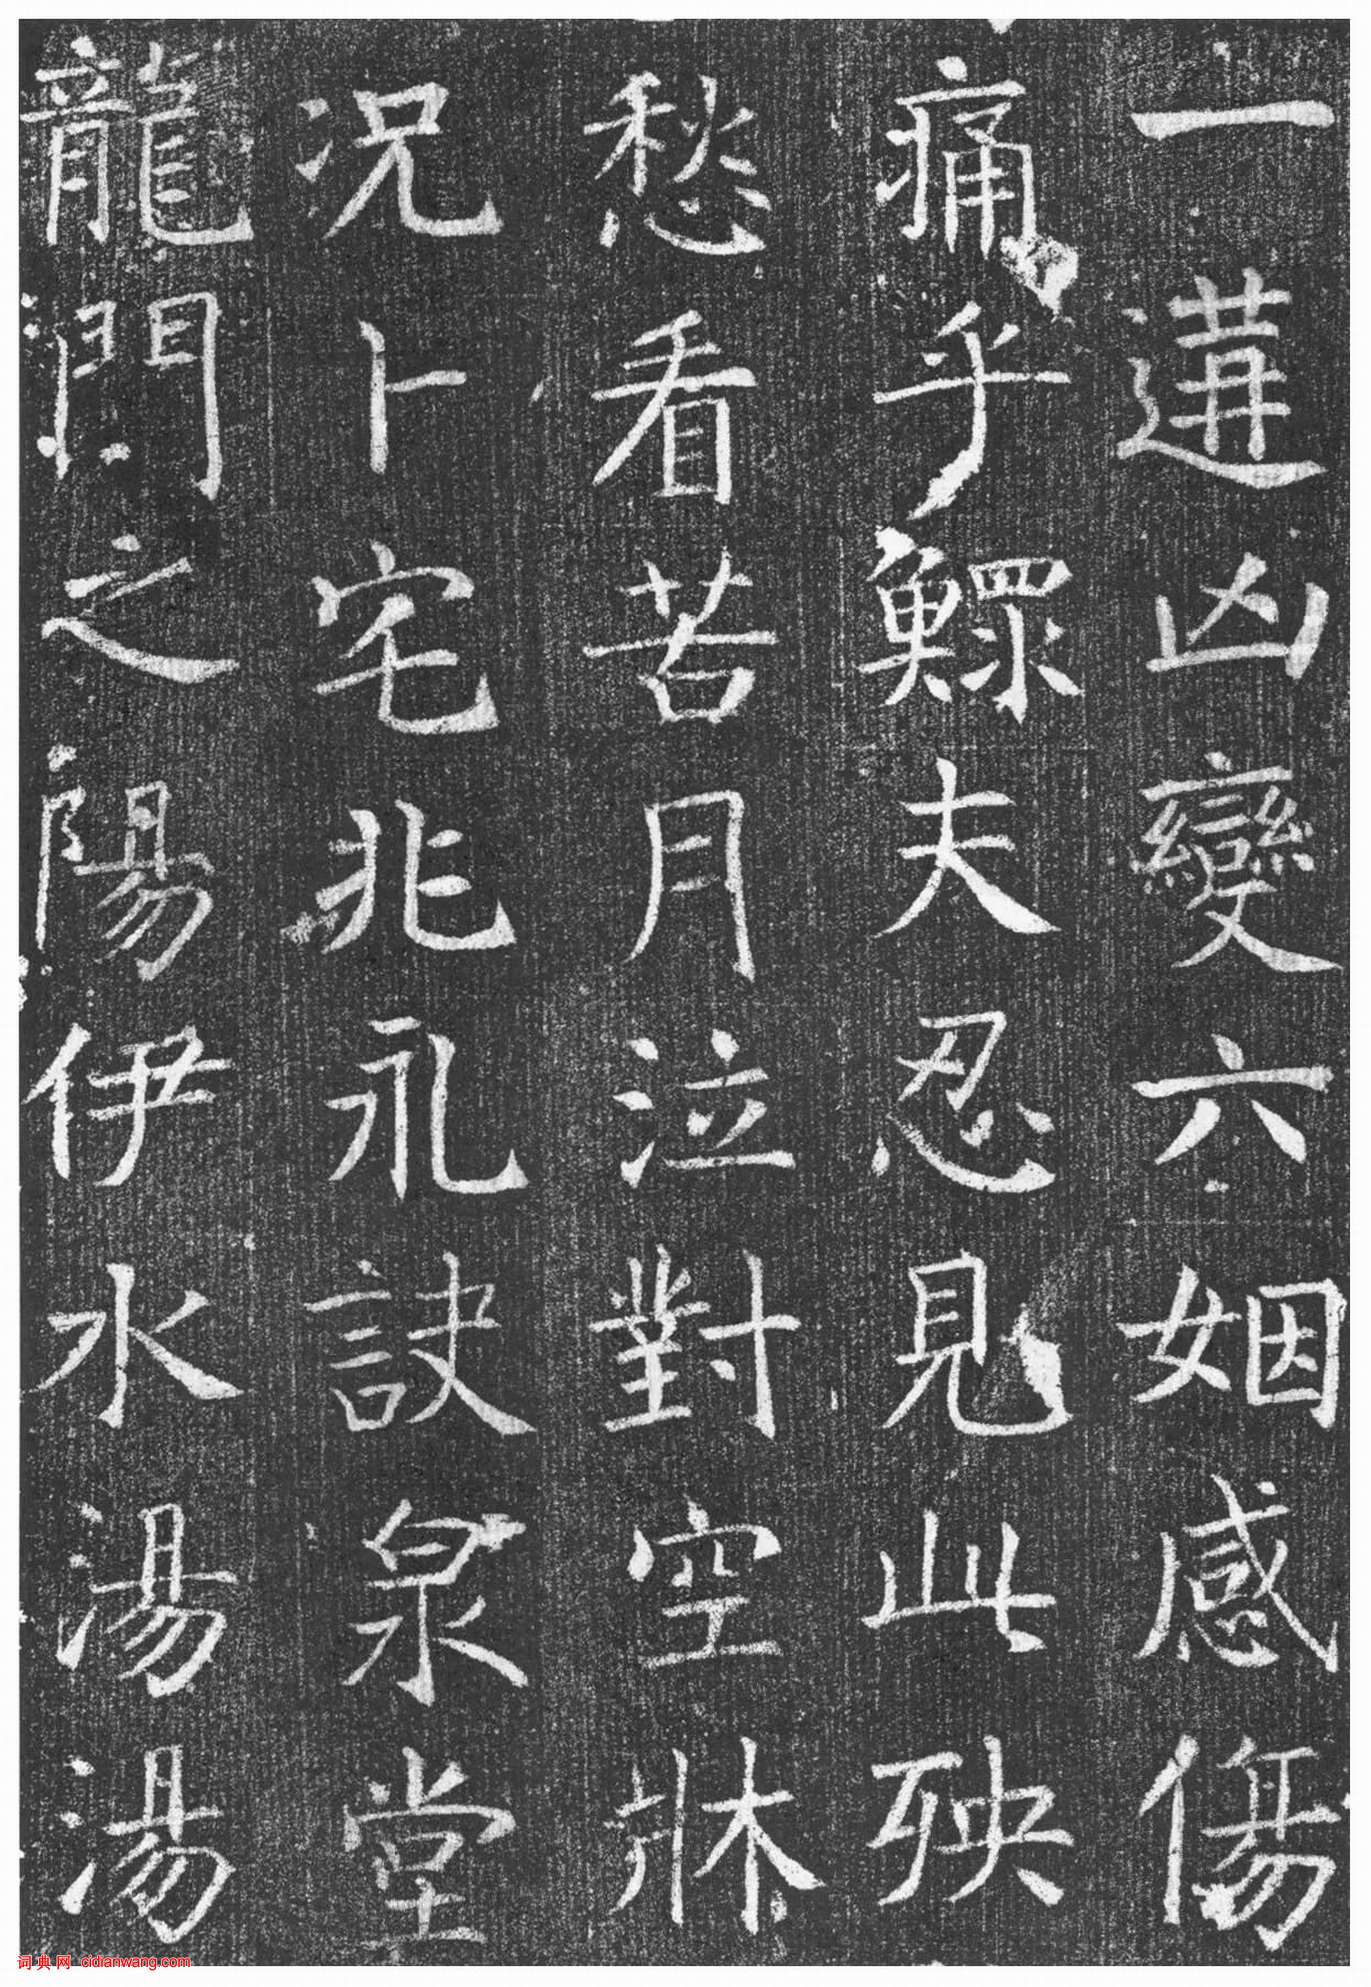 一遘凶變六姻感傷
痛乎鰥夫忍見此殃
愁看苦月泣對空牀
况卜宅兆永訣泉堂
龍門之陽伊水湯湯
词典网 cidianwang.com